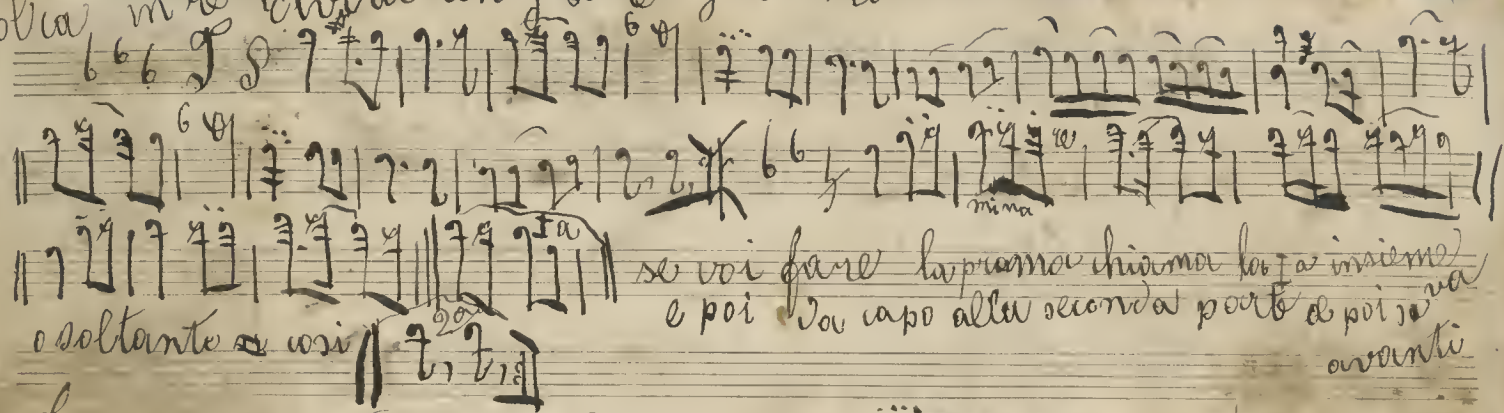 mina
1a
se voi fare la prama chiama la 1a insieme
e poi Da capo alla seconda parte e poi sa va
avanti
o soltanto a cosi
2a